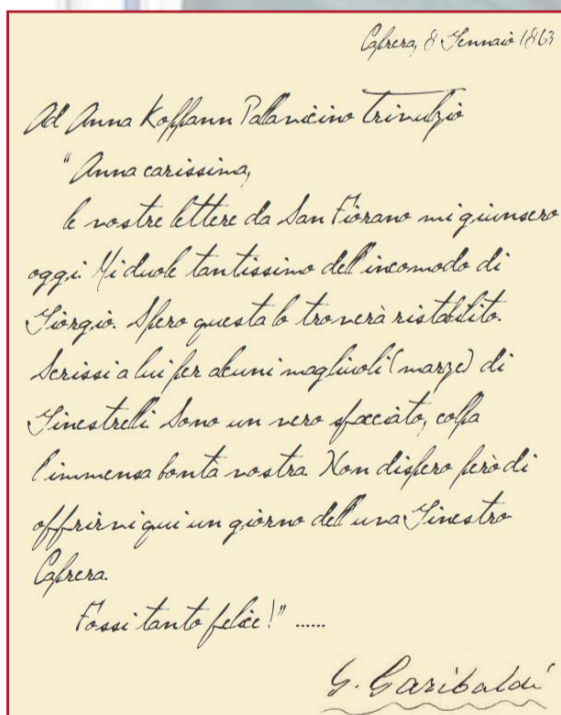 Caprera, 8 Gennaio 1863
Ad Anna Koppann Pallavicino Trivulzio
"Anna carissima,
le vostre lettere da San Fiorano mi giunsero
oggi. Mi duole tantissimo dell'incomodo di
Giorgio. Spero questa lo troverà ristabilito.
Scrissi a lui per alcuni magliuoli (marze) di
Ginestrelli. Sono un vero sfacciato, colpa
l'immensa bontà vostra. Non dispero però di
offrirvi qui un giorno dell'uva Ginestro
Caprera.
Fossi tanto felice!" ......
G. Garibaldi